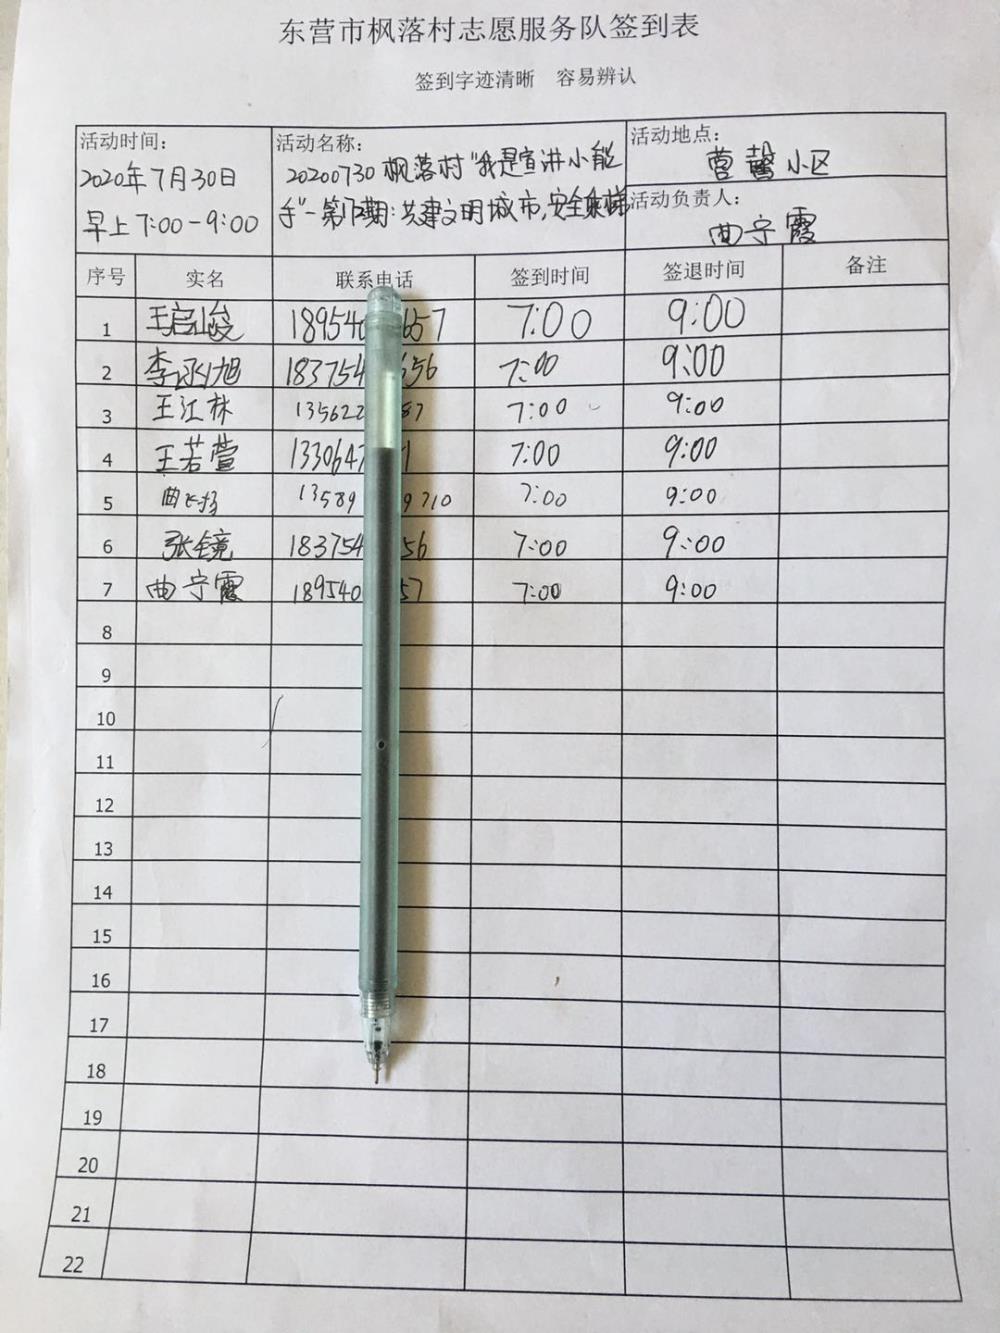 东营市枫落村志愿服务队签到表
签到字迹清晰 容易辨认
活动时间：
2020年7月30日
早上7:00-9:00
活动名称：
20200730枫落村"我是宣讲小能
手"-第12期：共建文明城市，安全乘梯
活动地点：
营馨小区
活动负责人：
曲宁霞
序号 实名 联系电话 签到时间 签退时间 备注
1 王启峻 189540 657 7:00 9:00
2 李 旭 183754 656 7:00 9:00
3 王江林 135622 87 7:00 9:00
4 王若萱 1330647 1 7:00 9:00
5 曲 13589 9710 7:00 9:00
6 张镜 183754 56 7:00 9:00
7 曲宁霞 189540 57 7:00 9:00
8
9
10
11
12
13
14
15
16
17
18
19
20
21
22